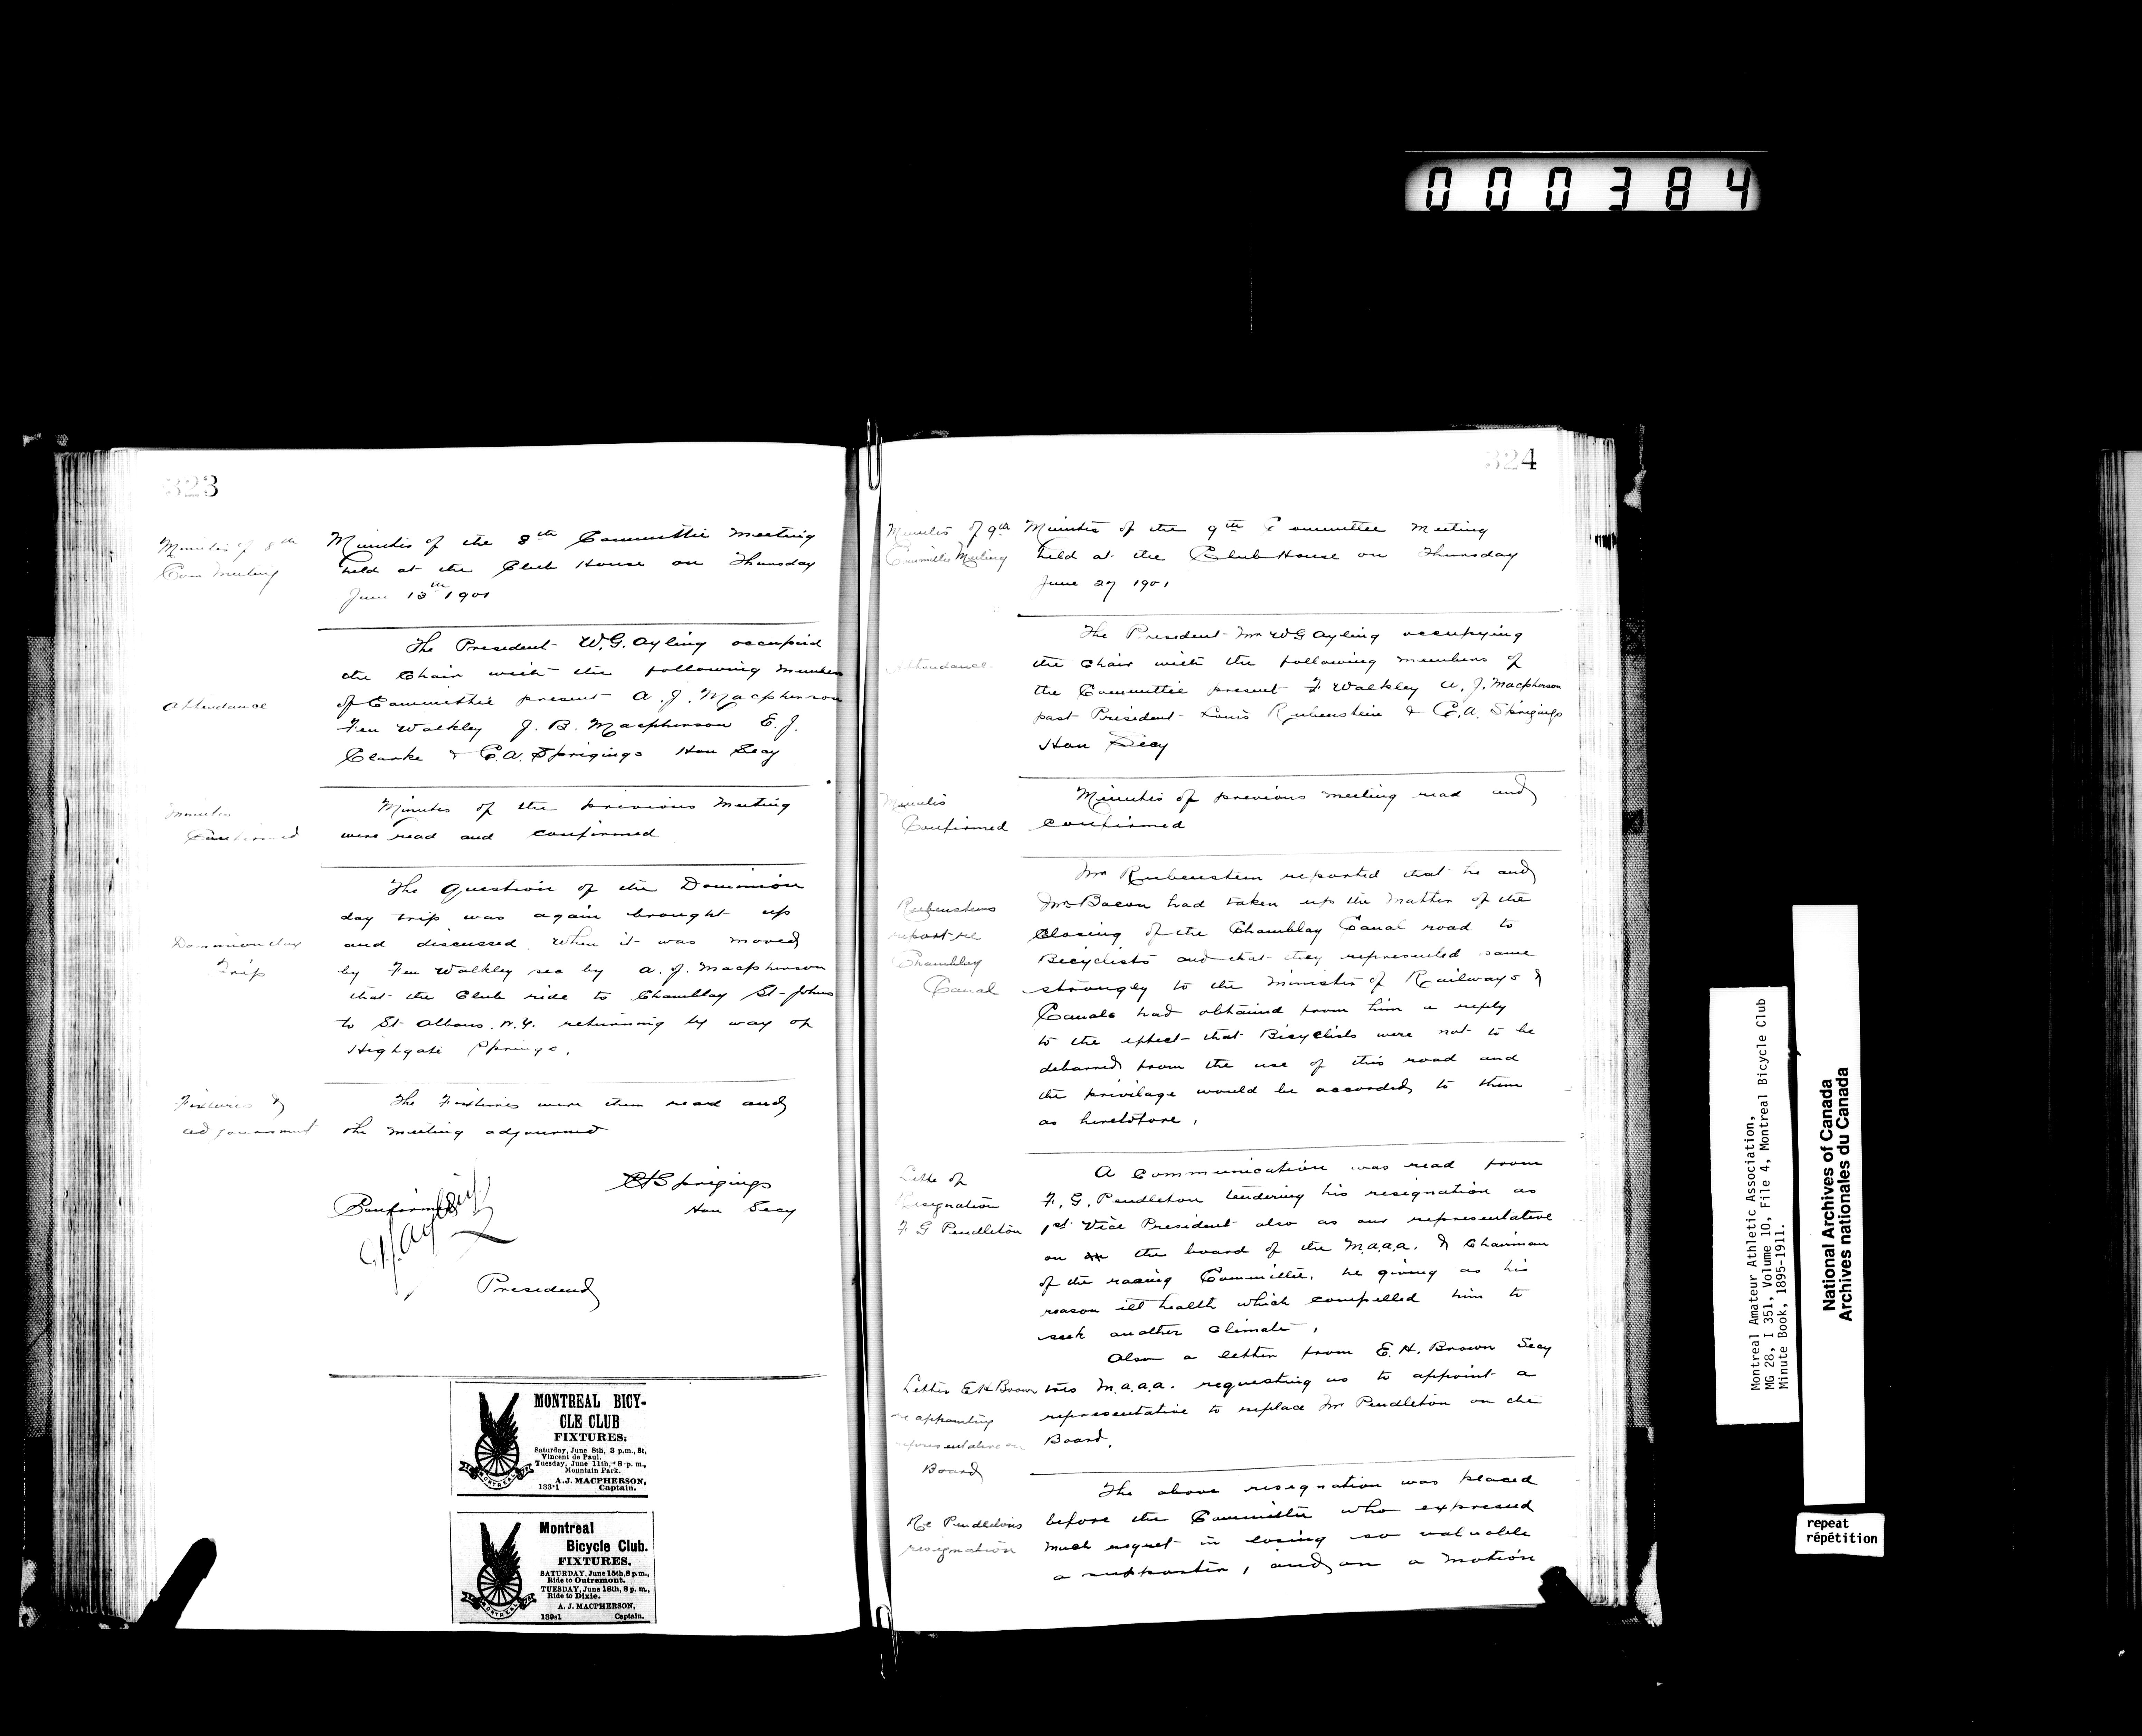 000384
323
Minutes of 8th
Com Meeting
Minutes of the 8th Committie Meeting
held at the Club House on Thursday
June 13th 1901
Attendance
The President W.G. Ayling occupied
the Chair with the following members
of Committie present A. J. Macpherson
Fen Walkley J. B. Macpherson E. J.
Clarke & C.A. Sprigings Hon Secy
Minutes
Confirmed
Minutes of the previous Meeting
were read and confirmed
Dominion day
Trip
The Question of the Dominion
day trip was again brought up
and discussed, when it was moved
by Fen Walkley sec by A. J. Macpherson
that the Club ride to Chamblay St-Johns
to St Albans. N.Y. returning by way of
Highgate Springs.
Fixtures &
adjournment
The Fixtures were then read and
the meeting adjourned
CA Sprigings
Hon Secy
Confirmed
W.G. Ayling
President
MONTREAL BICY-
CLE CLUB
FIXTURES.
Saturday, June 8th, 3 p.m., St.
Vincent de Paul.
Tuesday, June 11th, 8 p.m.,
Mountain Park.
A.J. MACPHERSON,
133*1 Captain.
MONTREAL
Montreal
Bicycle Club.
FIXTURES.
SATURDAY, June 15th, 3 p.m.,
Ride to Outremont.
TUESDAY, June 18th, 8 p. m.,
Ride to Dixie.
A. J. MACPHERSON,
139s1 Captain.
MONTREAL
324
Minutes of 9th
Committe Meeting
Minutes of the 9th Committee Meeting
held at the Club House on Thursday
June 27 1901
Attendance
The President Mr W G Ayling occupying
the Chair with the following members of
the Committie present F Walkley A. J. Macpherson
past President Louis Rubenstein & C.A. Sprigings
Hon Secy
Minutes
Confirmed
Minutes of previous meeting read and
confirmed
Rubensteins
report re
Chamblay
Canal
Mr Rubenstein reported that he and
Mr Bacon had taken up the matter of the
Closing of the Chamblay Canal road to
Bicyclists and that they represented same
strongly to the Minister of Railways &
Canals had obtained from him a reply
to the effect that Bicyclists were not to be
debarred from the use of this road and
the privilage would be accorded to them
as heretofore.
Lette of
Resignation
F G Pendleton
A Communication was read from
F. G. Pendleton tendering his resignation as
1st Vice President also as our representative
on the board of the M.a.a.a. & Chairman
of the racing Committie. he giving as his
reason ill health which compelled him to
seek another climate.
Also a letter from E. H. Brown Secy
Letter E H Brown
re appointing
representative on
Board
M.a.a.a. requesting us to appoint a
representative to replace Mr Pendleton on the
Board.
Re Pendletons
resignation
The above resignation was placed
before the Committie who expressed
much regret in losing so valuable
a supporter, and on a motion
Montreal Amateur Athletic Association,
MG 28, I 351, Volume 10, File 4, Montreal Bicycle Club
Minute Book, 1895-1911.
National Archives of Canada
Archives nationales du Canada
repeat
répétition